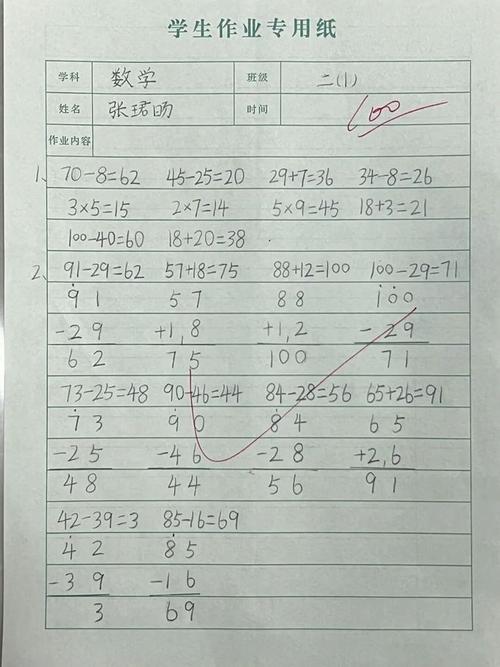 学生作业专用纸
学科 数学 班级 二(1)
姓名 张珺旸 时间 100
作业内容
1、70-8=62 45-25=20 29+7=36 34-8=26
3×5=15 2×7=14 5×9=45 18+3=21
100-40=60 18+20=38
2、91-29=62 57+18=75 88+12=100 100-29=71
91 57 88 100
-29 +1,8 +1,2 -29
62 75 100 71
73-25=48 90-46=44 84-28=56 65+26=91
73 90 84 65
-25 -46 -28 +2,6
48 44 56 91
42-39=3 85-16=69
42 85
-39 -16
3 69